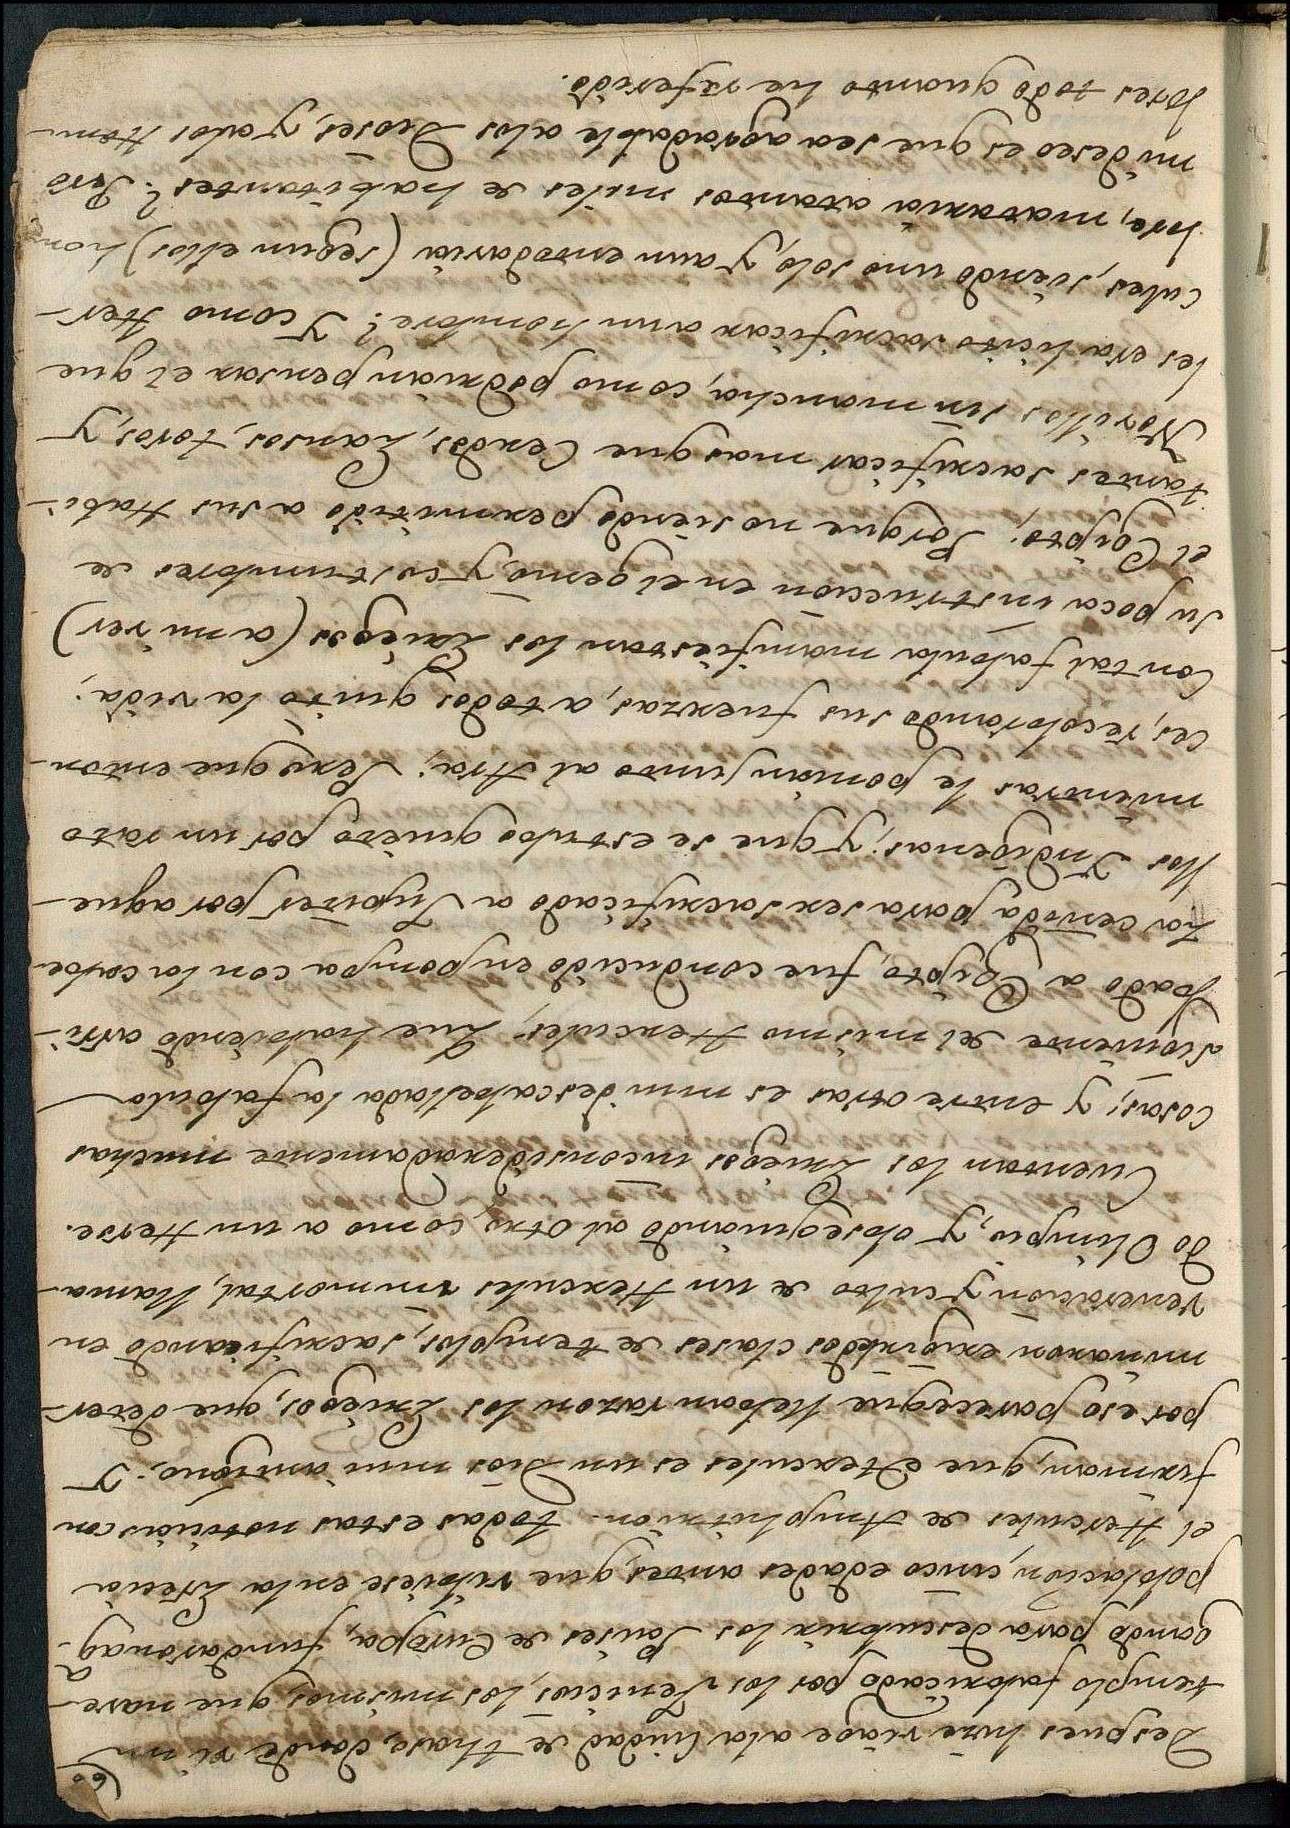 60
Despues hize viage a la Ciudad de Thaso, donde vi un
templo fabricado por los Fenicios, los mismos, que nave-
gando para descubrir los Paises de Europa, fundaron aq.a
poblacion, cinco edades antes, que viviese en la Grecia
el Hercules de Amphitrion. todas estas noticias con
firman, que Hercules es un Dios mui antiguo; Y
por eso parece que lleban razon los Griegos, que deter-
minaron erigirle dos clases de templos, sacrificando en
veneracion y culto de un Hercules immortal, llama-
do Olimpio, y obsequiando al otro, como a un Heroe.
Cuentan los Griegos inconsideradamente muchas
cosas; y entre otras es mui descabellada la fabula
siguiente del mismo Hercules; Que habiendo arri-
bado a Egipto, fue conducido en pompa con la cabe-
za ceñida, para ser sacrificado a Jupiter por aque-
llos Indigenas; y que se estubo quieto por un rato
mientras le ponian junto al Ara; Pero que enton-
ces, recobrando sus fuerzas, a todos quito la vida;
Con tal fabula manifiestan los Griegos (a mi ver)
su poca instruccion en el genio, y costumbres de
el Egipto; Porque no siendo permitido a sus Habi-
tantes sacrificar mas que Cerdos, Gansos, toros, y
Novillos sin mancha, como podrian pensar el que
les era licito sacrificar a un hombre? Y como Her-
cules, siendo uno solo, y aun entodavia (segun ellos) hom
bre, mataria a tantos miles de habitantes? Pero
mi deseo es que sea agradable a los Dioses, y a los Hom-
bres todo quanto he referido.